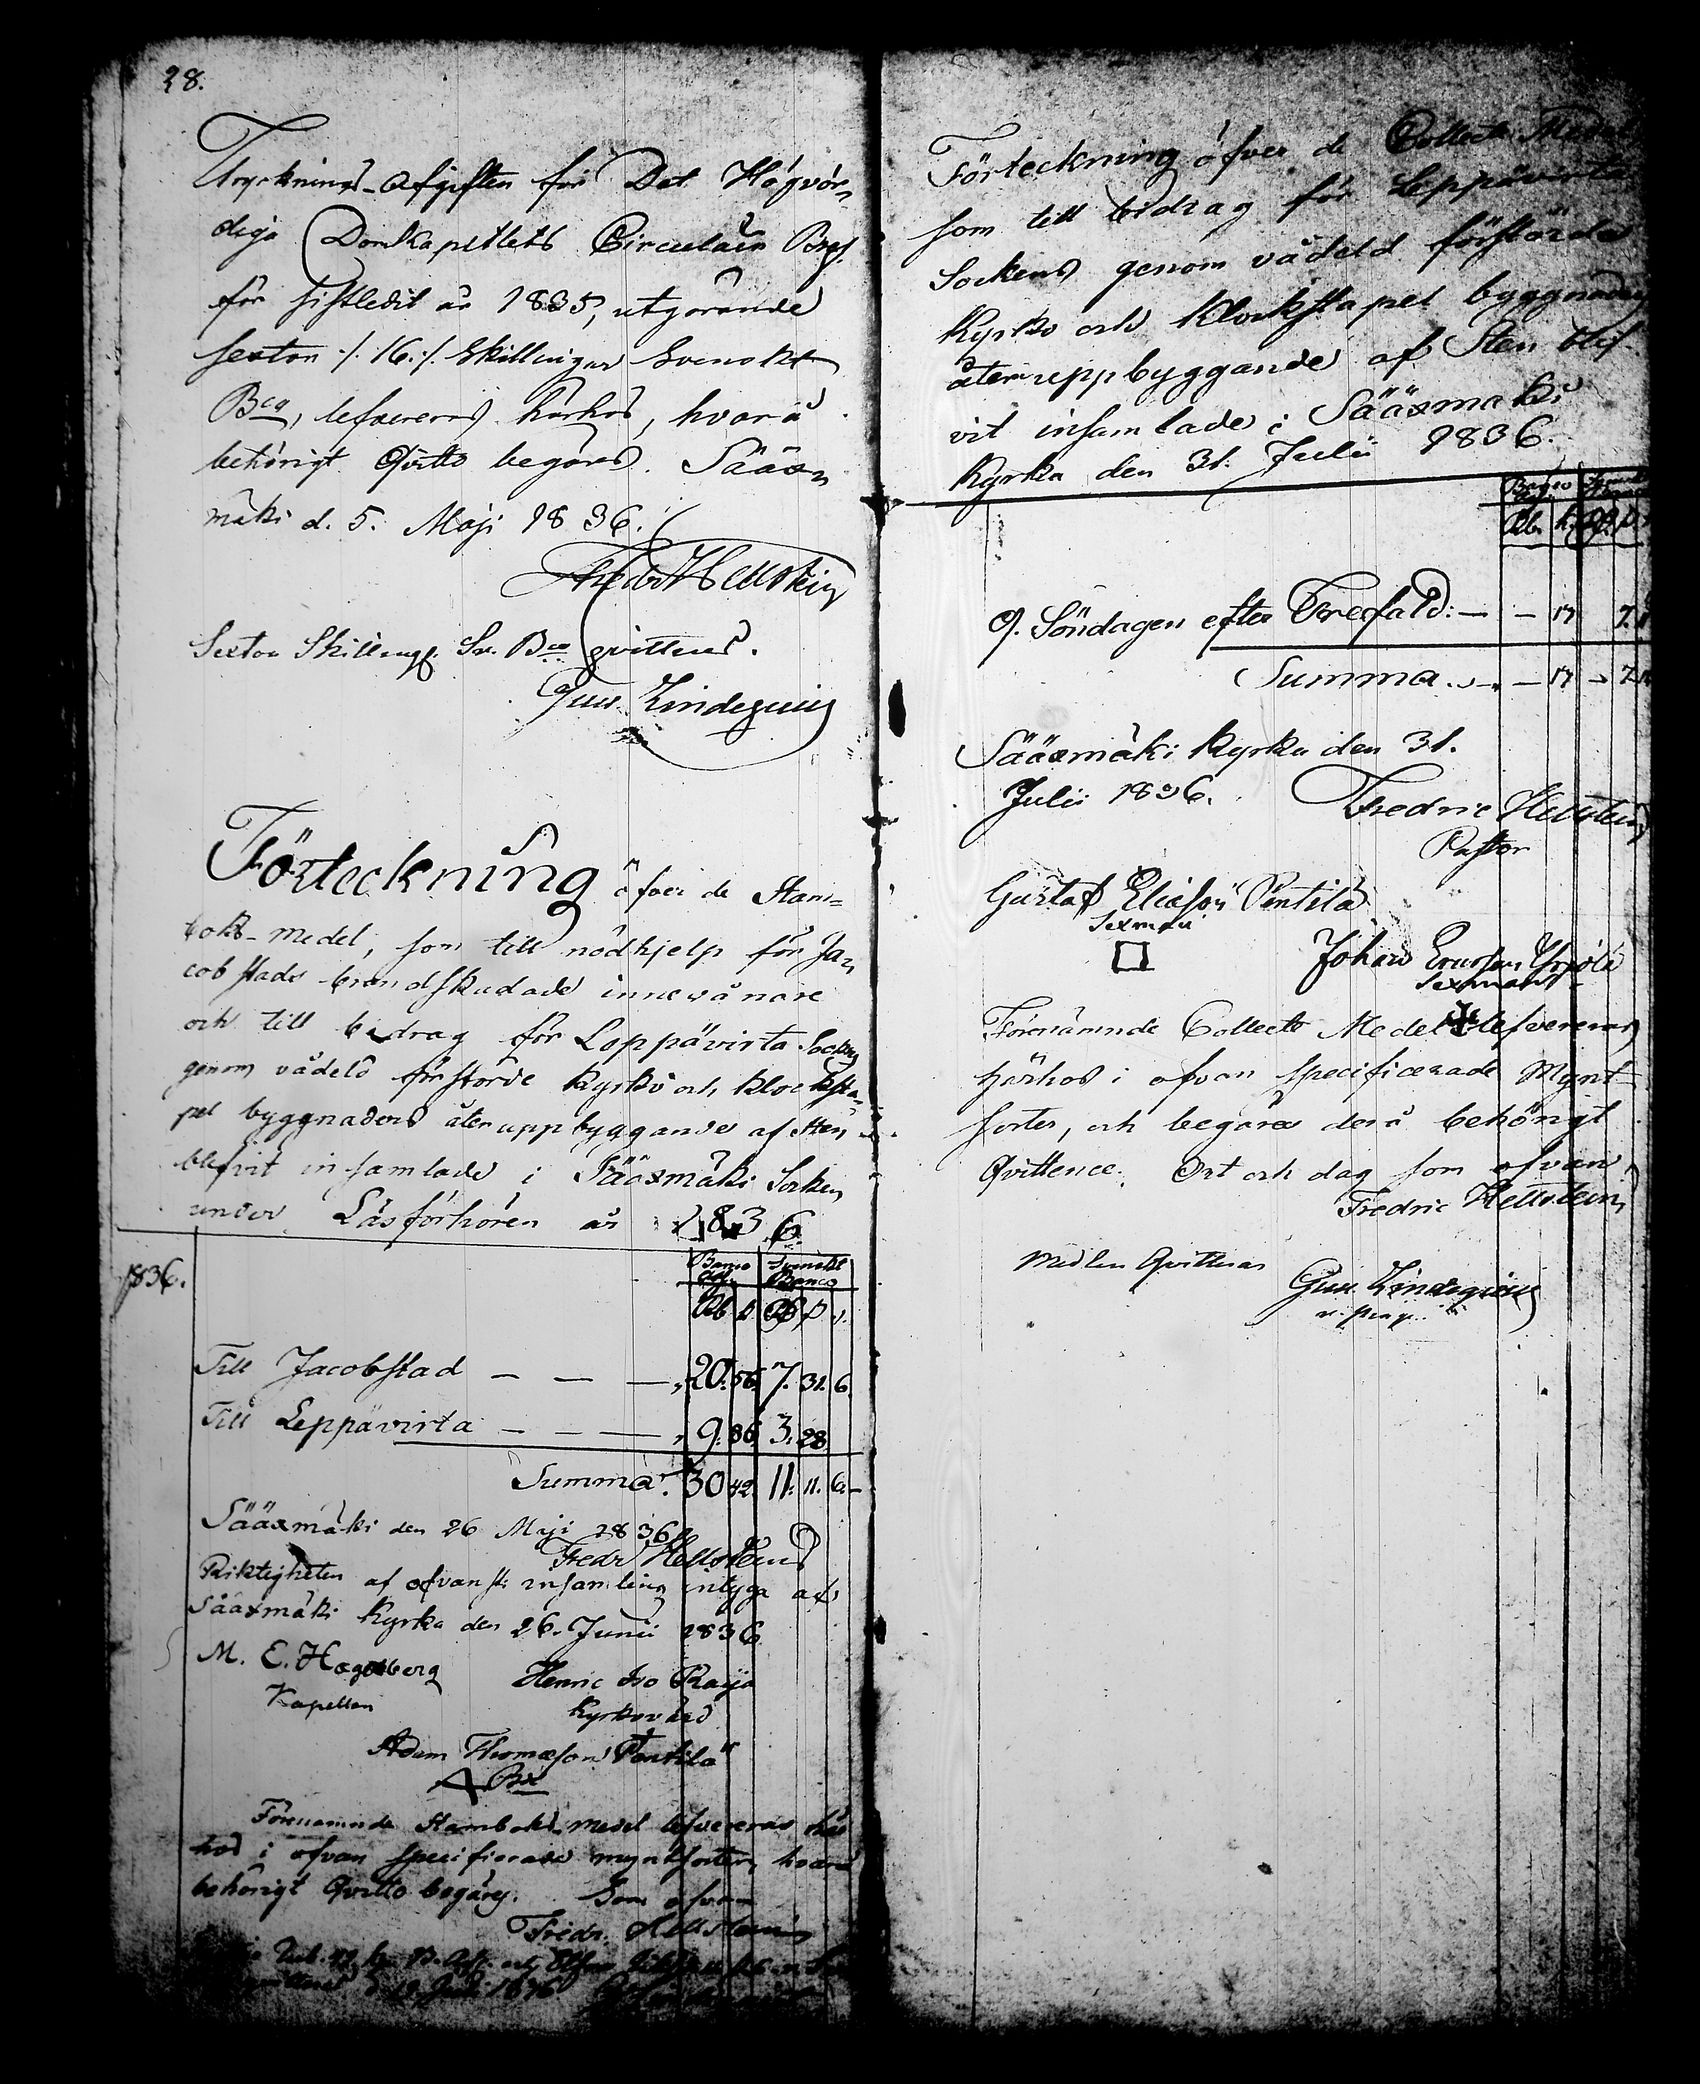 28.
Trycknings-Afgiften för Det Högvör-
diga DomKapitlets Circulair Bref
för sistledit år 1835, utgörande
sexton ./. 16. /. Skillingar Svenskt
Bco, lefvereras härhos, hvarå
behörigt Qvitto begäres. Sääx-
mäki d. 5. Maji 1836.
Fredr Hellstein
Sexton Skillingr Sv. Bco qvitteras.
Gust.
Förteckning öfver de Stam-
boks-medel, som till nödhjelp för Ja-
cobstads brandskadade innevånare
och till bidrag för Leppävirta Sockens
genom vådeld förstörde Kyrko och klocksta-
pel byggnaders återuppbyggande af Sten
blifvit insamlade i Sääxmäki Socken
under Läsförhören år 1836
1836.
Banco Svenskt
Banco
Rb k
Till Jacobstad — — — 20. 56. 7. 31. 6.
Till Leppävirta — — — 9. 86. 3. 28.
Summa. 30 42. 11. 11. 6. —
Sääxmäki den 26 Maji 1836
Fredr Hellstein
Riktigheten af ofvanst: insamling intyga
Sääxmäki Kyrka den 26. Junii 1836
M. E. Hagelberg
Kapellan
Henric Raija
Kyrkovärd
Adam Thomasson Pentilä
Förenämnde Stamboks medel lefvereras här
hos i ofvan specificerade myntsorter, hvarå
behörigt Qvitto begäres. Som ofvan
Fredr. Hellstein
Förteckning öfver de Collect Medel
som till bidrag för Leppävirta
Sockens genom vådeld förstörde
Kyrko och Klockstapel byggnaders
återuppbyggande af Sten blif-
vit insamlade i Sääxmäki
Kyrka den 31. Julii 1836.
Banco
Rb. k.
9. Söndagen efter Trefald: — — 17 7.
Summa — 17 7.
Sääxmäki Kyrka den 31.
Julii 1836.
Fredric Hellstein
Pastor
Gustaf Eliasson Pentilä
Sexman
Johan Ericsson
Sexman
Förenämnde Collect Medel lefvereras
härhos i ofvan specificerade Mynt-
sorter, och begäres derå behörigt
Qvittence. Ort och dag som ofvan
Fredric Hellstein
Medlen Qvitteras
Gust.